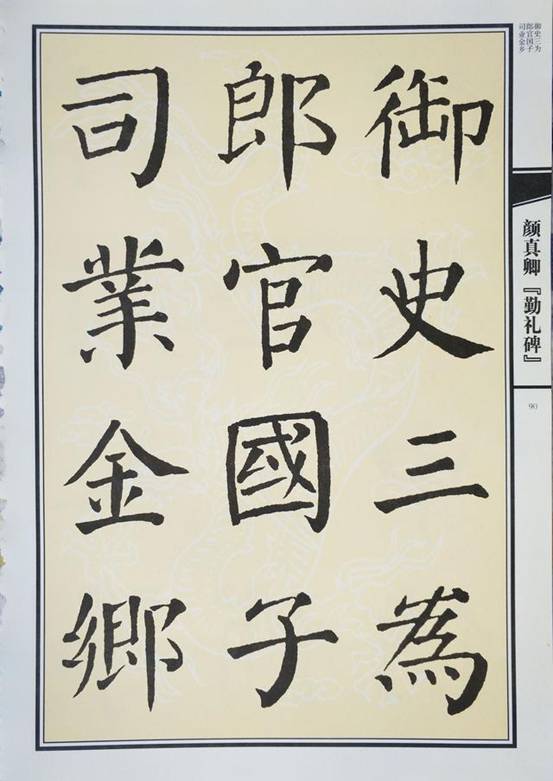 御史三為
郎官國子
司業金鄉
御史三为
郎官国子
司业金乡
颜真卿『勤礼碑』
90